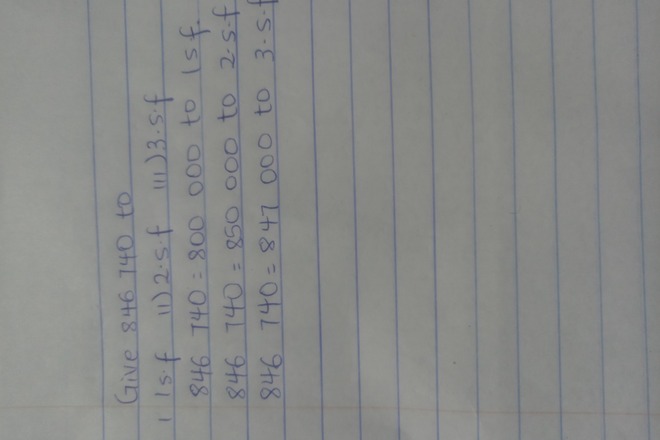 Give 846 740 to
i 1s.f ii) 2.s.f iii) 3.s.f
846 740 = 800 000 to 1 s f.
846 740 = 850 000 to 2.s.f
846 740 = 847 000 to 3.s.f